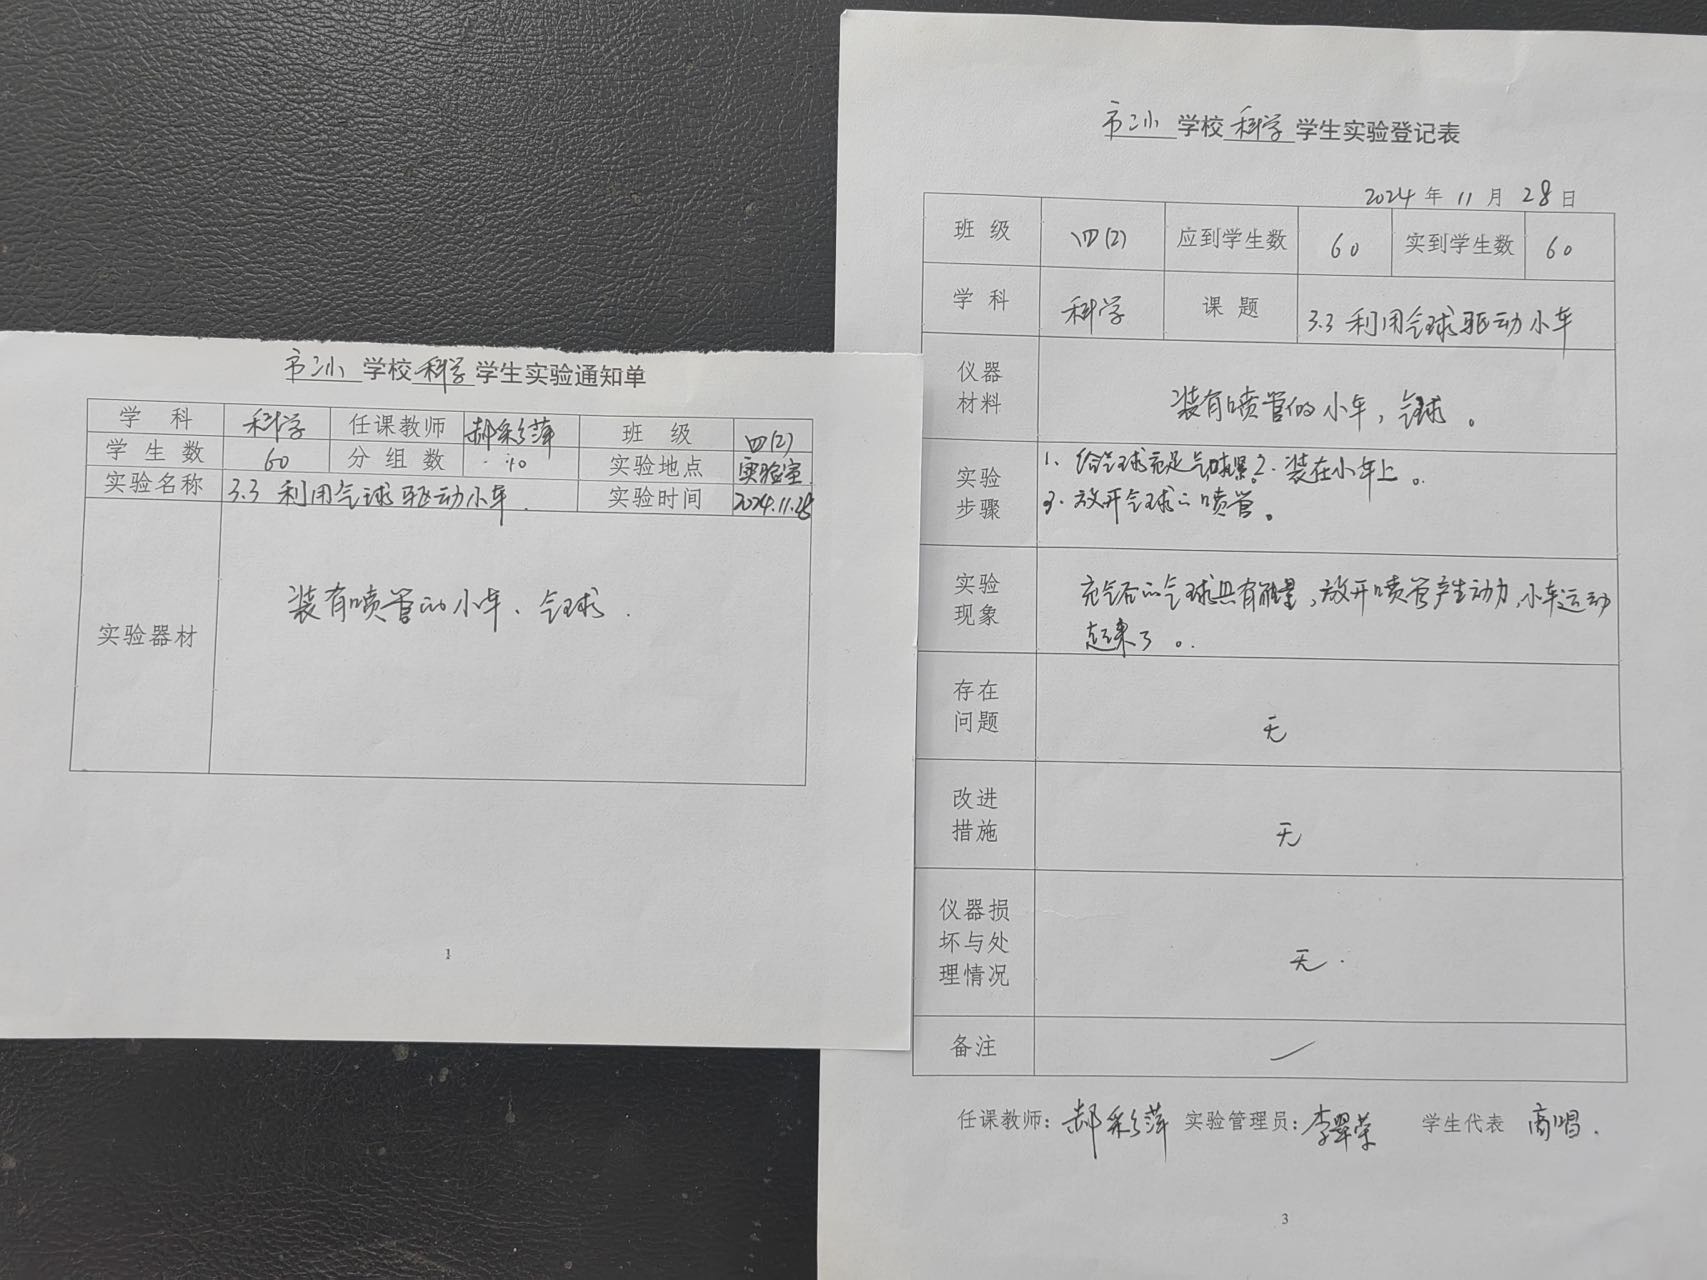 市三小 学校 科学 学生实验通知单
学 科 科学 任课教师 郝彩萍 班 级 四(2)
学 生 数 60 分 组 数 10 实验地点 实验室
实验名称 3.3 利用气球驱动小车. 实验时间 2024.11.28
实验器材 装有喷管的小车、气球.
1
市三小 学校 科学 学生实验登记表
2024 年 11 月 28 日
班 级 四(2) 应到学生数 60 实到学生数 60
学 科 科学 课 题 3.3 利用气球驱动小车
仪器
材料
装有喷管的小车,气球。
实验
步骤
1. 给气球充足气 2. 装在小车上。
3. 放开气球的喷管。
实验
现象
充气后的气球具有能量,放开喷管产生动力,小车运动
起来了。
存在
问题
无
改进
措施
无
仪器损
坏与处
理情况
无.
备注
任课教师: 郝彩萍 实验管理员: 李翠荣 学生代表 高唱.
3